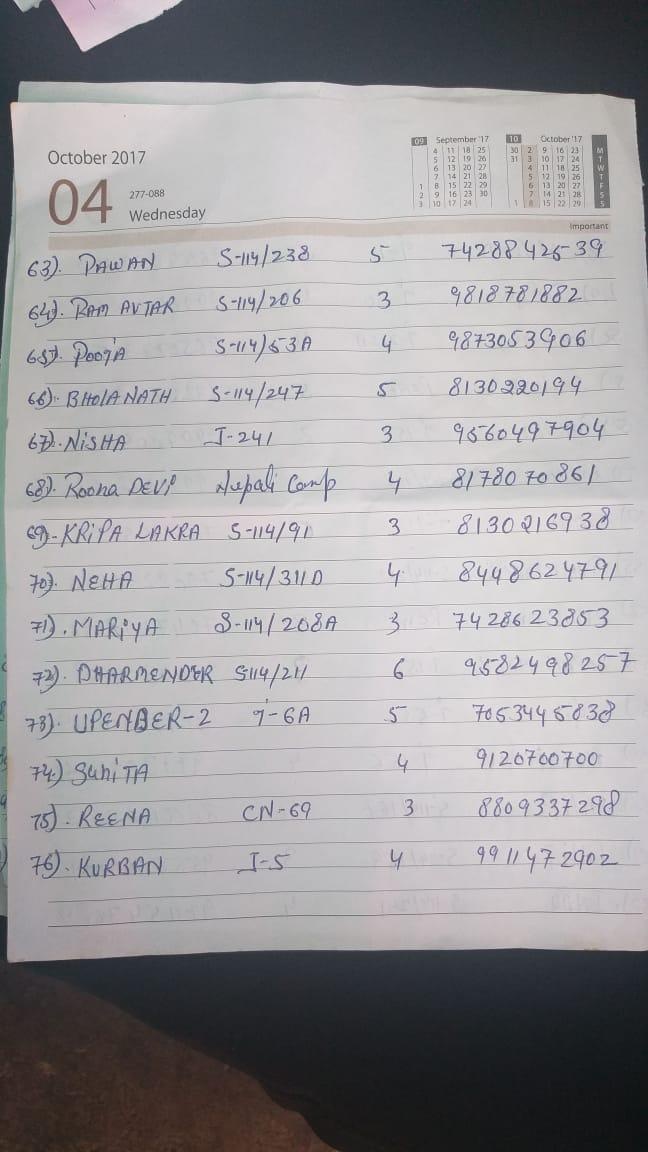 October 2017
04
277-088
Wednesday
09 September '17
4 11 18 25
5 12 19 26
6 13 20 27
7 14 21 28
1 8 15 22 29
2 9 16 23 30
3 10 17 24
10 October '17
30 2 9 16 23 M
31 3 10 17 24 T
4 11 18 25 W
5 12 19 26 T
6 13 20 27 F
7 14 21 28 S
1 8 15 22 29 S
Important
63). PAWAN S-114/238 5 7428842539
64). RAM AVTAR S-114/206 3 9818781882
65). POOJA S-114/53A 4 9873053906
66). BHOLANATH S-114/247 5 8130220194
67). NiSHA I-241 3 9560497904
68). Roona DEVI Nepali Camp 4 8178070861
69)-KRIPA LAKRA S-114/91 3 8130216938
70). NEHA S-114/311D 4 8448624791
71). MARiYA S-114/208A 3 7428623853
72). DHARMENDER S114/211 6 9582498257
73). UPENDER-2 I-6A 5 7053445838
74.) SuNiTA 4 9120700700
75). REENA CN-69 3 8809337298
76). KURBAN I-5 4 9911472902